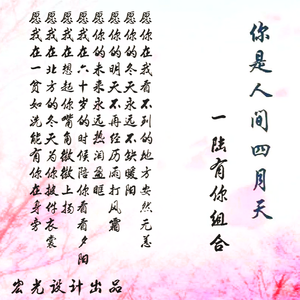 你是人间四月天
一陆有你组合
愿你在我看不到的地方安然无恙
愿你的冬天永远不缺暖阳
愿你的明天不再经历雨打风霜
愿你的未来永远热泪盈眶
愿我在六十岁的时候陪你看看夕阳
愿我在想起你嘴角微微上扬
愿我在北方的冬天为你披件衣裳
愿我在一贫如洗能有你在身旁
宏光设计出品